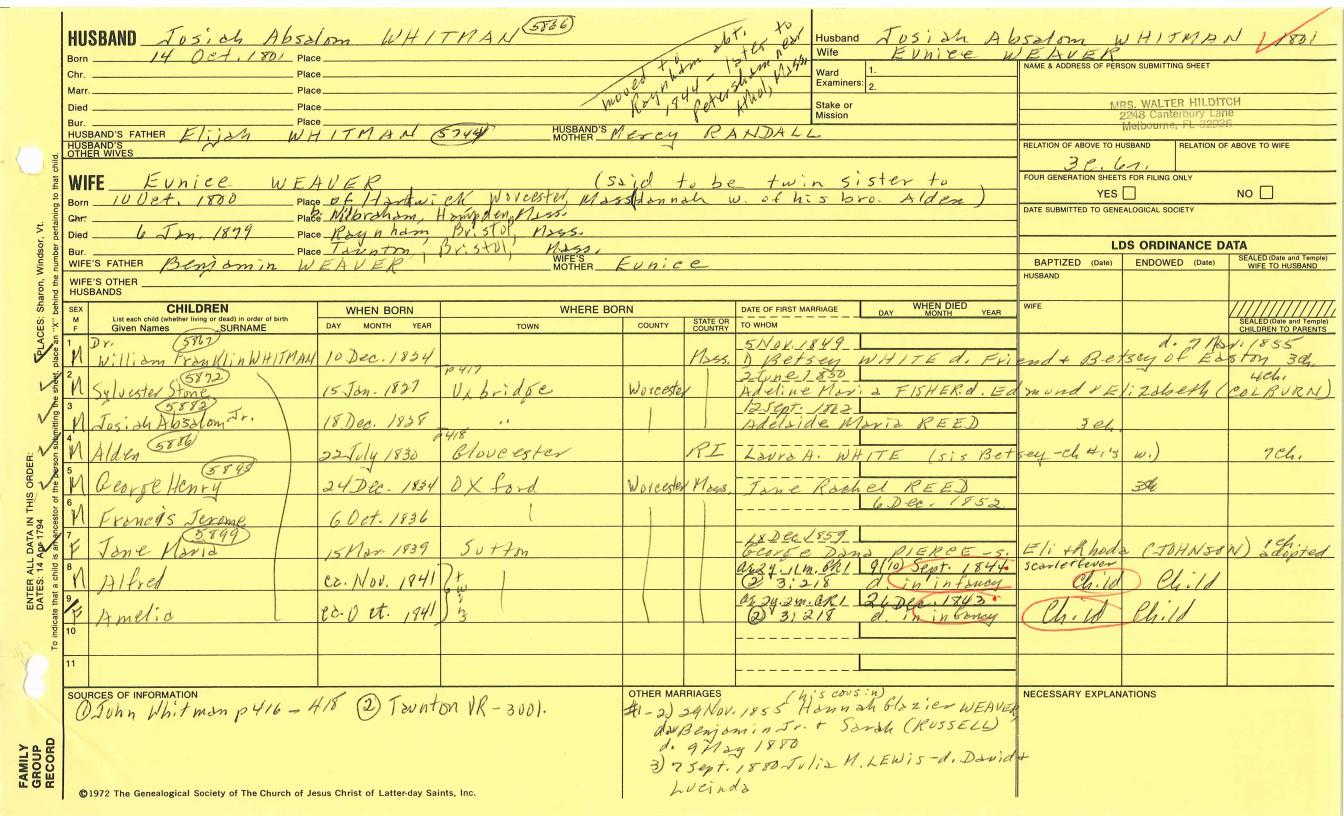 HUSBAND Josiah Absalom WHITMAN 5866
Born 14 Oct. 1801 Place
Chr. Place
Marr. Place
Died Place
Bur. Place
moved to Raynham abt. 1844 - later to Petersham near Athol, Mass.
HUSBAND'S FATHER Elijah WHITMAN 5744 HUSBAND'S MOTHER Mercy RANDALL
HUSBAND'S OTHER WIVES
Husband Josiah Absalom WHITMAN 1801
Wife Eunice WEAVER
Ward Examiners: 1.
2.
Stake or Mission
NAME & ADDRESS OF PERSON SUBMITTING SHEET
MRS. WALTER HILDITCH
2248 Canterbury Lane
Melbourne, FL 32935
RELATION OF ABOVE TO HUSBAND RELATION OF ABOVE TO WIFE
3c. 6r.
FOUR GENERATION SHEETS FOR FILING ONLY
YES NO
DATE SUBMITTED TO GENEALOGICAL SOCIETY
WIFE Eunice WEAVER (said to be twin sister to
Born 10 Oct. 1800 Place of Hartwick Worcester, Mass Hannah w. of his bro. Alden)
Chr. Place Wilbraham, Hampden, Mass.
Died 6 Jan. 1879 Place Raynham, Bristol, Mass.
Bur. Place Taunton, Bristol, Mass.
WIFE'S FATHER Benjamin WEAVER WIFE'S MOTHER Eunice
WIFE'S OTHER HUSBANDS
LDS ORDINANCE DATA
BAPTIZED (Date) ENDOWED (Date) SEALED (Date and Temple) WIFE TO HUSBAND
HUSBAND
WIFE
SEALED (Date and Temple) CHILDREN TO PARENTS
SEX M F
CHILDREN
List each child (whether living or dead) in order of birth
Given Names SURNAME
WHEN BORN
DAY MONTH YEAR
WHERE BORN
TOWN COUNTY STATE OR COUNTRY
DATE OF FIRST MARRIAGE
TO WHOM
WHEN DIED
DAY MONTH YEAR
1 Dr. 5867 5 Nov. 1849 d. 7 Mar. 1855
M William Franklin WHITMAN 10 Dec. 1824 Mass. Betsey WHITE d. Friend & Betsey of Easton 3ch.
2 5872 p417 2 June 1850 4ch.
M Sylvester Stone 15 Jan. 1827 Uxbridge Worcester Adeline Maria FISHER d. Edmund & Elizabeth (COLBURN)
3 5882 12 Sept. 1862
M Josiah Absalom Jr. 18 Dec. 1828 " Adelaide Maria REED 3 ch.
4 5886 p418
M Alden 22 July 1830 Gloucester RI Laura A. WHITE (sis Betsey-ch #1's w.) 7ch.
5 5895
M George Henry 24 Dec. 1834 Oxford Worcester Mass. Jane Rachel REED
6 6 Dec. 1852
M Francis Jerome 6 Oct. 1836
7 5899 18 Dec 1859
F Jane Maria 15 Mar. 1839 Sutton George Dana PIERCE - s. Eli & Rhoda (JOHNSON) 1 ch. adopted
8 9/10 Sept. 1844 scarlet fever
M Alfred ca. Nov. 1841 ② 3:218 d. in infancy Child Child
9 26 Dec. 1843
F Amelia ca. Oct. 1841 ② 3:218 d. in infancy Child Child
10
11
SOURCES OF INFORMATION
① John Whitman p416-418 ② Taunton VR - 3001.
OTHER MARRIAGES
(his cousin)
#1-2) 29 Nov. 1855 Hannah Glazier WEAVER
Benjamin Jr. + Sarah (RUSSELL)
d. 9 May 1880
3) 7 Sept. 1880 Julia M. LEWIS - d. David +
Lucinda
NECESSARY EXPLANATIONS
©1972 The Genealogical Society of The Church of Jesus Christ of Latter-day Saints, Inc.
FAMILY GROUP RECORD
ENTER ALL DATA IN THIS ORDER:
DATES: 14 Apr 1794 PLACES: Sharon, Windsor, Vt.
To indicate that a child is an ancestor of the person submitting the sheet, place an "X" behind the number pertaining to that child.